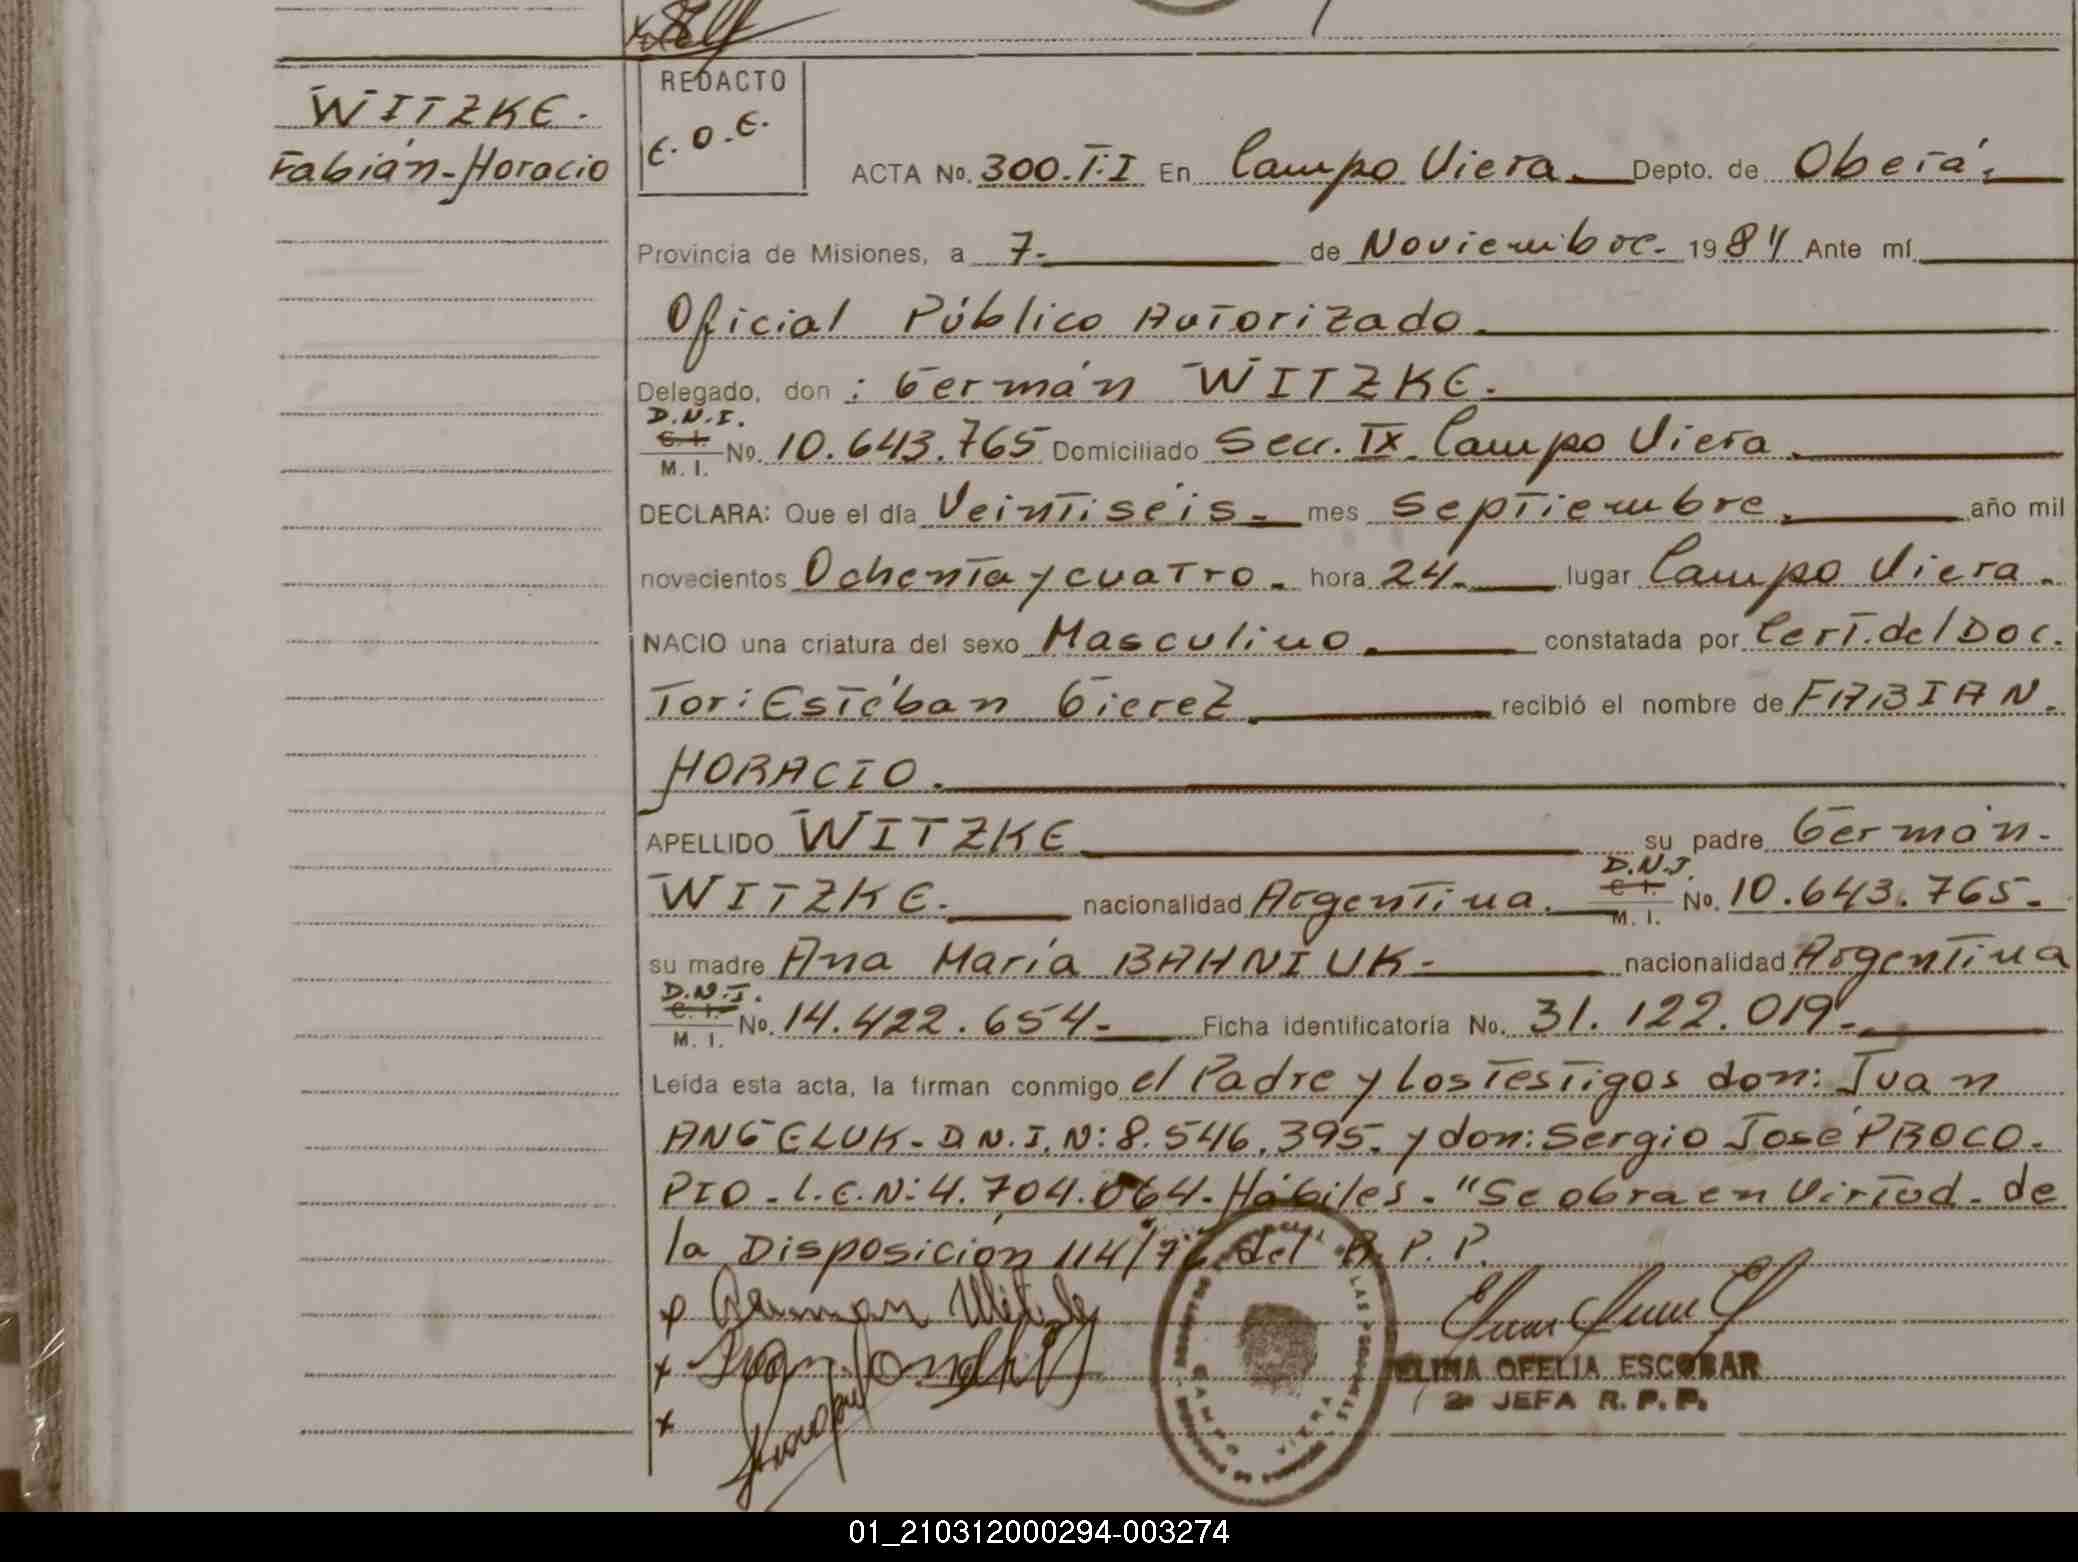 WITZKE.
Fabián-Horacio
REDACTO
E.O.E.
ACTA No. 300.T.I En Campo Viera. Depto. de Oberá.
Provincia de Misiones, a 7- de Noviembre. 1984 Ante mí
Oficial Público Autorizado.
Delegado, don: Germán WITZKE.
D.N.I.
C. I.
M. I. No. 10.643.765 Domiciliado Secc. IX. Campo Viera.
DECLARA: Que el día Veintiséis. mes Septiembre. año mil
novecientos Ochenta y cuatro. hora 24. lugar Campo Viera.
NACIO una criatura del sexo Masculino. constatada por Cert. del Doc.
Tor: Estéban Gierez. recibió el nombre de FABIAN.
HORACIO.
APELLIDO WITZKE su padre Germán.
D.N.I.
C. I.
WITZKE. nacionalidad Argentina. M. I. No. 10.643.765.
su madre Ana María BAHNIUK- nacionalidad Argentina
D.N.I.
C. I.
M. I. No. 14.422.654- Ficha identificatoria No. 31.122.019.
Leída esta acta, la firman conmigo el Padre y los Testigos don: Juan
ANGELUK- D.N.I. N: 8.546.395. y don: Sergio José PROCO-
PIO- L.E.N: 4.704.064. Hábiles. "Se obra en Virtud. de
la Disposición 114/76 del R.P.P.
x German Witzke
x
x
CAMPO VIERA
ELINA OFELIA ESCOBAR
2a JEFA R.P.P.
01_210312000294-003274